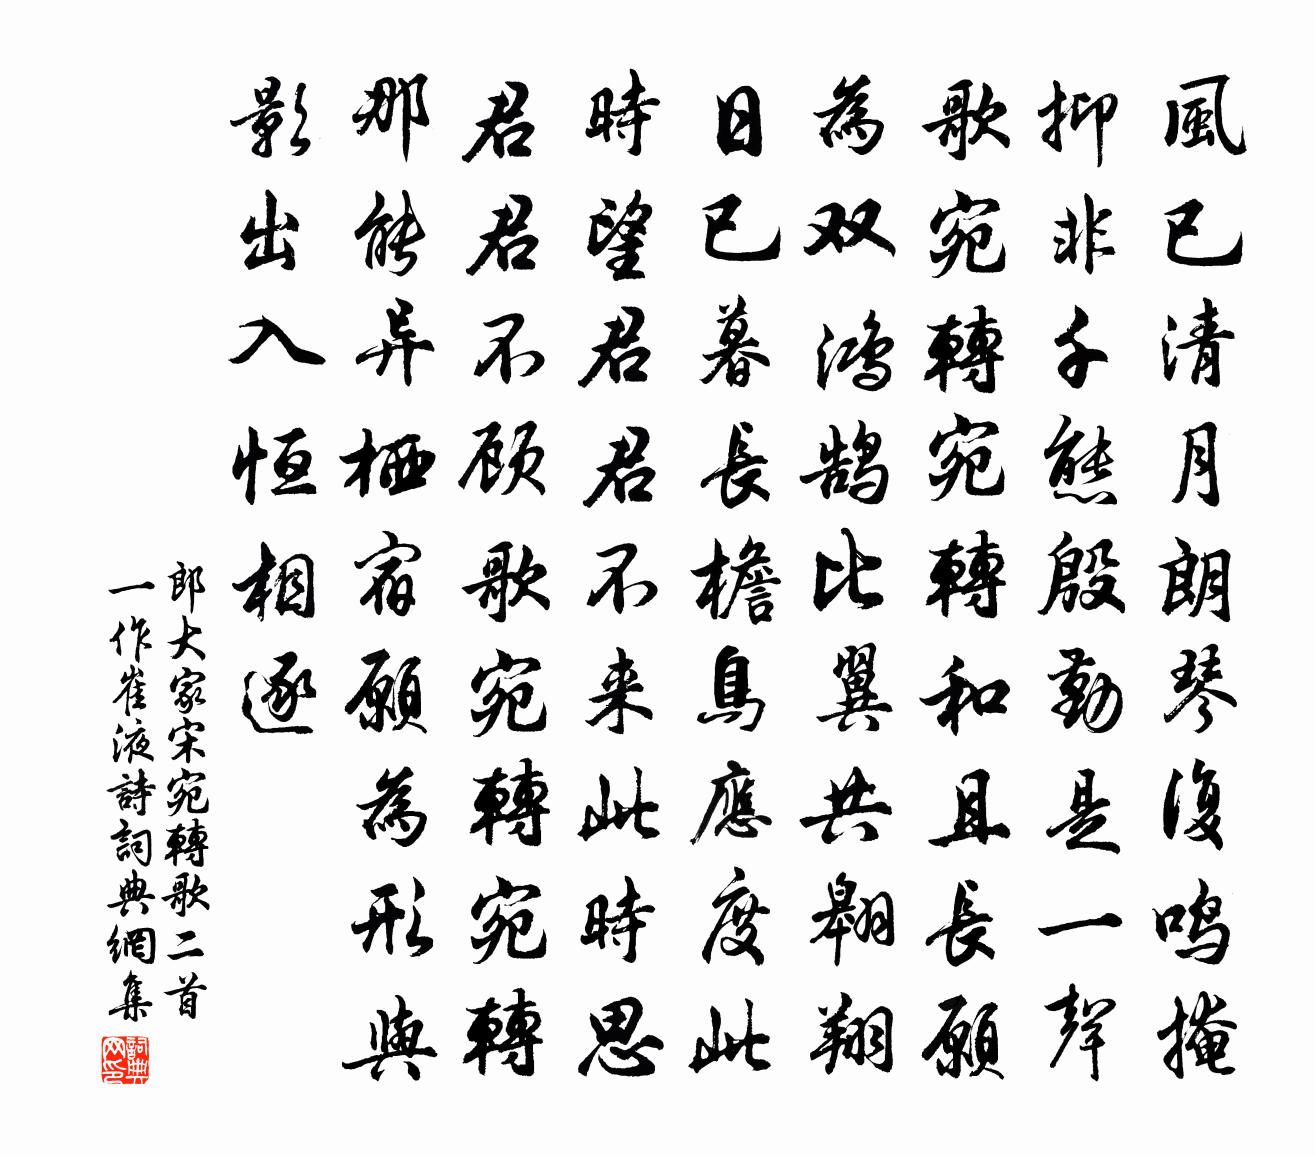 風已清月朗琴復鸣掩
抑非千態殷勤是一聲
歌宛轉宛轉和且長願
為双鸿鹄比翼共翱翔
日已暮長檐鳥應度此
時望君君不来此時思
君君不顾歌宛轉宛轉
那能异栖宿願為形與
影出入恒相逐
郎大家宋宛轉歌二首
一作崔液詩詞典網集
詞典
网印